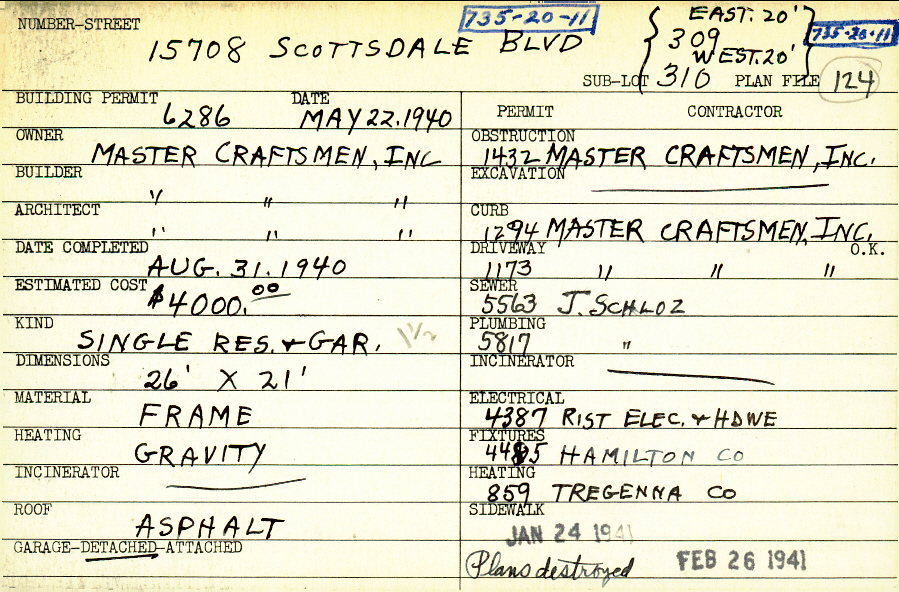 735-20-11
EAST. 20'
NUMBER-STREET
15708 SCOTTSDALE BLVD
309
735-20-11
WEST. 20'
SUB-LOT 310 PLAN FILE 124
BUILDING PERMIT DATE
6286 MAY 22. 1940
OWNER
MASTER CRAFTSMEN, INC
BUILDER
" " "
ARCHITECT
" " "
DATE COMPLETED
AUG. 31. 1940
ESTIMATED COST
$4000.00
KIND
SINGLE RES. & GAR. 1 1/2
DIMENSIONS
26' X 21'
MATERIAL
FRAME
HEATING
GRAVITY
INCINERATOR
ROOF
ASPHALT
GARAGE-DETACHED-ATTACHED
PERMIT CONTRACTOR
OBSTRUCTION
1432 MASTER CRAFTSMEN, INC.
EXCAVATION
CURB
1294 MASTER CRAFTSMEN, INC.
DRIVEWAY O.K.
1173 " " "
SEWER
5563 J. SCHLOZ
PLUMBING
5817 "
INCINERATOR
ELECTRICAL
4387 RIST ELEC. & HDWE
FIXTURES
HAMILTON CO
HEATING
859 TREGENNA CO
SIDEWALK
JAN 24 1941
Plans destroyed FEB 26 1941